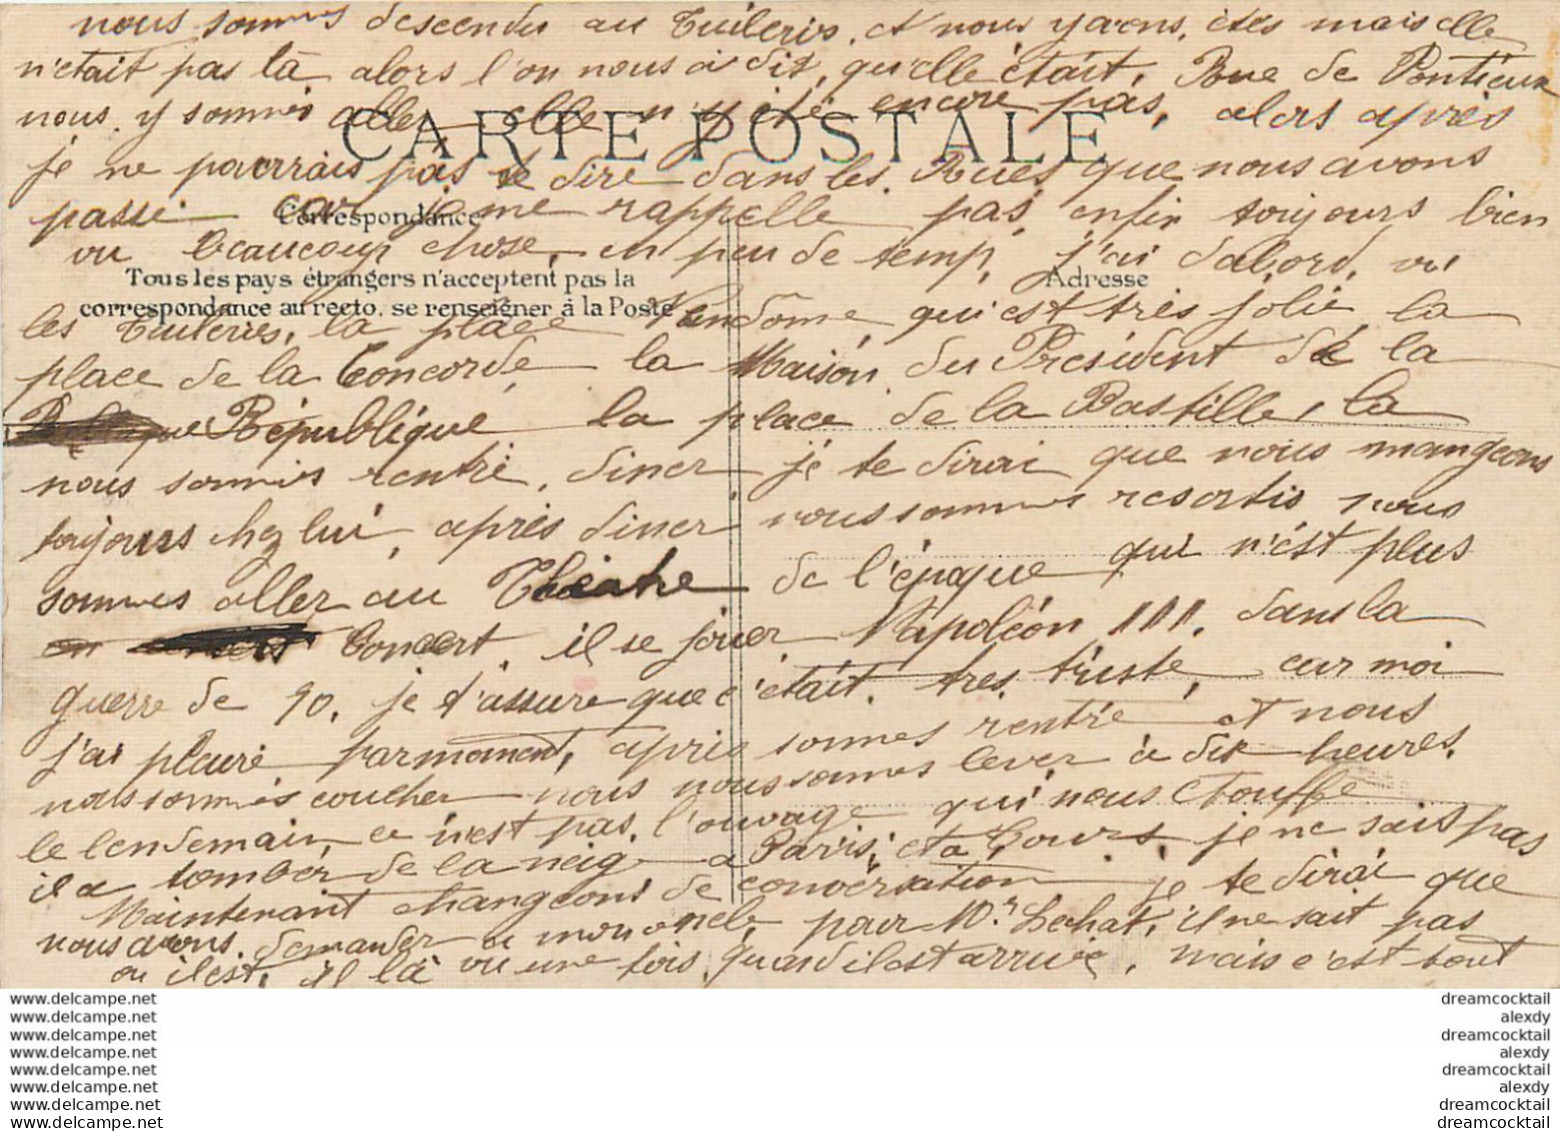 nous sommes descendu au Tuileris, et nous y avons, étés mais elle
n'etait pas là alors l'on nous à dit, qu'elle était, Rue de Pontieux
nous y sommes aller elle n'y été encore pas, alors après
CARTE POSTALE
je ne pourrais pas te dire dans les Rues que nous avons
passé car je me rappelle pas, enfin toujours bien
Correspondance
vu beaucoup chose, en peu de temp, j'ai d'abord, vu
Tous les pays étrangers n'acceptent pas la
Adresse
correspondance au recto, se renseigner à la Poste
les Tuileries, la place Vendome qu'i est très jolie, la
place de la Concorde, la Maison du Président de la
République la place de la Bastille, la
nous sommes rentré, diner, je te dirai que nous mangeons
toujours chez lui, après diner, nous sommes resortis nous
sommes aller au Théatre de l'époque qui n'est plus
Concert, il se jouer Napoléon III, dans la
guerre de 70, je t'assure que c'était très triste, car moi
j'ai pleuré parmoment, après sommes rentré et nous
nous sommes coucher nous nous sommes lever à dix heures,
le lendemain, ce n'est pas, l'ouvage qui nous étouffe
il a tomber de la neige a Paris, et a Tours je ne sais pas
Maintenant changeons de conversation je te dirai que
nous avons demander a mon oncle, pour Mr Lechat, il ne sait pas
ou il est, il là vu une fois quand il est arrivé, mais c'est tout
www.delcampe.net
www.delcampe.net
www.delcampe.net
www.delcampe.net
www.delcampe.net
www.delcampe.net
www.delcampe.net
www.delcampe.net
dreamcocktail
alexdy
dreamcocktail
alexdy
dreamcocktail
alexdy
dreamcocktail
dreamcocktail